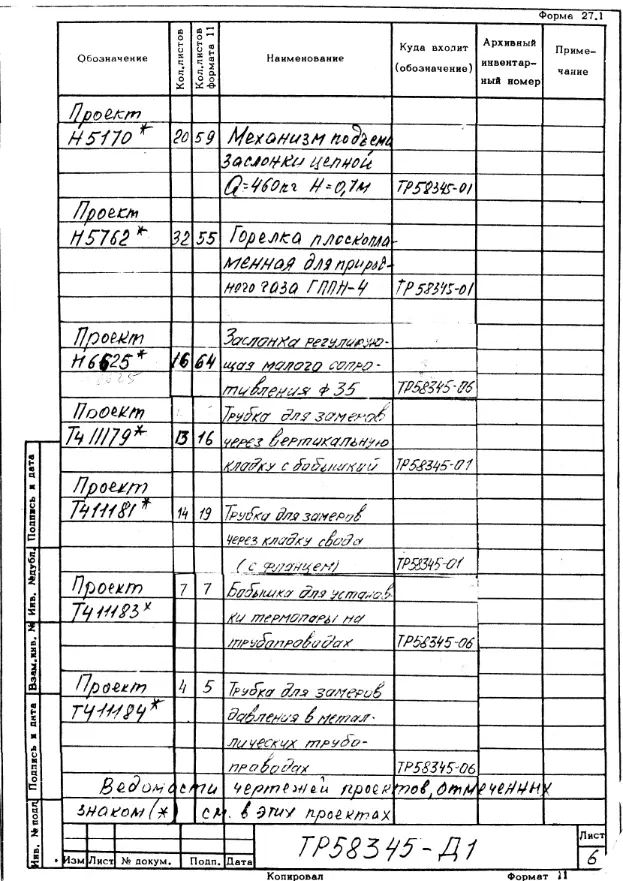 Форма 27.1
Обозначение Кол.листов Кол.листов формата 11 Наименование Куда входит (обозначение) Архивный инвентар-ный номер Приме-чание
Проект
Н5170* 20 59 Механизм подъема
заслонки цепной
Q=460кг H=0,7м ТР58345-01
Проект
Н5762* 32 55 Горелка плоскопла-
менная для природ-
ного газа ГППН-4 ТР58345-01
Проект Заслонка регулирую-
Н6625* 16 64 щая малого сопро-
тивления Ф 35 ТР58345-06
Проект Трубка для замеров
Т411179* 13 16 через вертикальную
кладку с бобышкой ТР58345-01
Проект
Т411181* 14 19 Трубка для замеров
через кладку свода
(с фланцем) ТР58345-01
Проект 7 7 Бобышка для установ
Т411183* ки термопары на
трубопроводах ТР58345-06
Проект 4 5 Трубка для замеров
Т411184* давления в метал-
лических трубо-
проводах ТР58345-06
Ведомости чертежей проектов, отмеченных
знаком (*) см. в этих проектах
ТР58345-Д1
Лист
6
Изм Лист № докум. Подп. Дата
Копировал Формат 11
Подпись и дата
Инв. №дубл.
Взам.инв. №
Подпись и дата
Инв. №подл